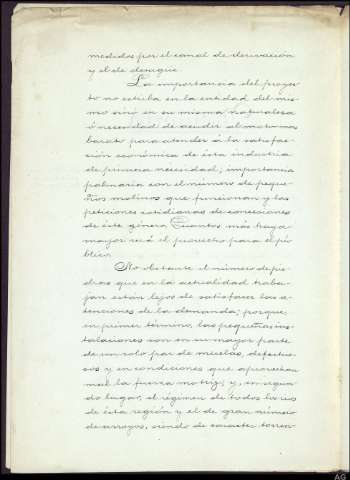 medidos por el canal de derivación
y el de desague
La importancia del proyec-
to no estriba en la entidad del mis-
mo sinó en su misma naturalesa
ó necesidad de acudir al motor mas
barato para atender á la satisfac-
ción económica de ésta industria
de primera necesidad; importancia
palmaria con el número de peque-
ños molinos que funcionan y las
peticiones cotidianas de concesiones
de éste género. Cuantos más haya
mayor será el provecho para el pú-
blico.
No obstante el número de pie-
dras que en la actualidad traba-
jan están lejos de satisfacer las e-
xenciones de la demanda; porque,
en primer término, las pequeñas ins-
talaciones son en su mayor parte
de un solo par de muelas, defectuo-
sas y en condiciones que aprovechan
mal la fuerza motriz; y, en segun-
do lugar, el régimen de todos los rios
de ésta región y el de gran número
de arroyos, siendo de caracter torren-
AG